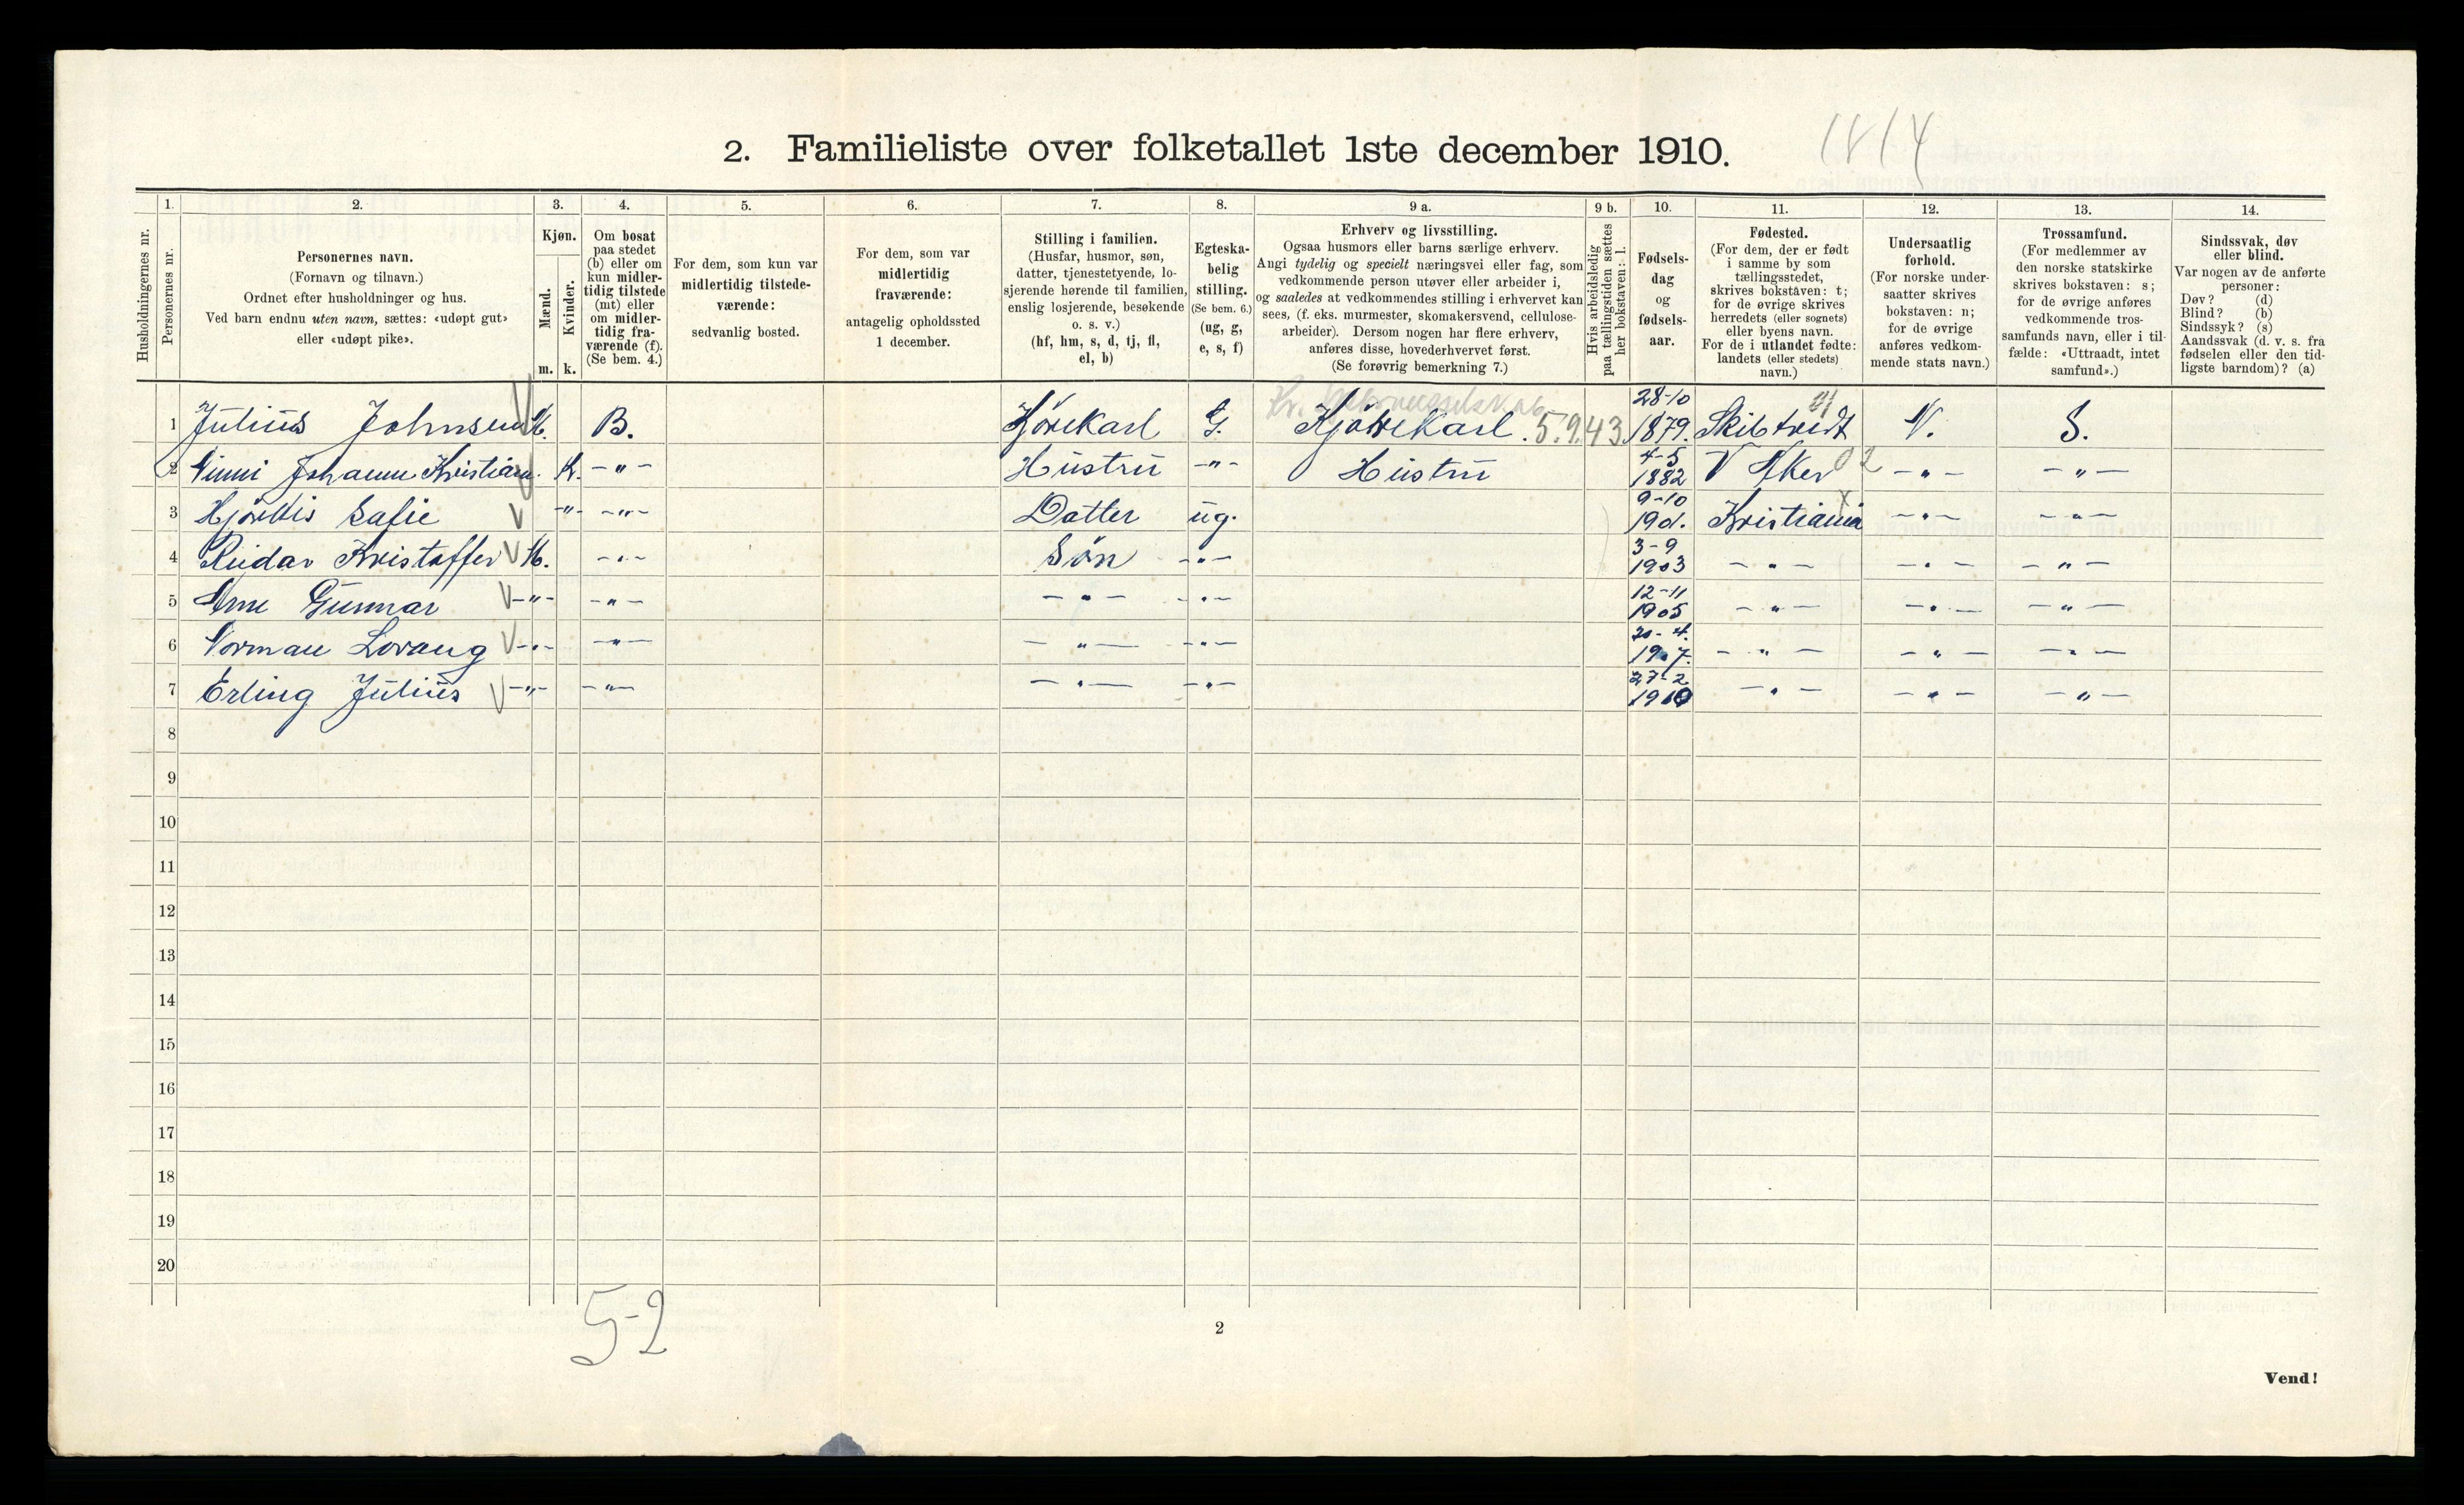 2. Familieliste over folketallet 1ste december 1910.
1814
Husholdningernes nr.
1.
Personernes nr.
2.
Personernes navn.
(Fornavn og tilnavn.)
Ordnet efter husholdninger og hus.
Ved barn endnu uten navn, sættes: «udøpt gut»
eller «udøpt pike».
3.
Kjøn.
Mænd.
Kvinder.
m. k.
4.
Om bosat
paa stedet
(b) eller om
kun midler-
tidig tilstede
(mt) eller
om midler-
tidig fra-
værende (f).
(Se bem. 4.)
5.
For dem, som kun var
midlertidig tilstede-
værende:
sedvanlig bosted.
6.
For dem, som var
midlertidig
fraværende:
antagelig opholdssted
1 december.
7.
Stilling i familien.
(Husfar, husmor, søn,
datter, tjenestetyende, lo-
sjerende hørende til familien,
enslig losjerende, besøkende
o. s. v.)
(hf, hm, s, d, tj, fl,
el, b)
8.
Egteska-
belig
stilling.
(Se bem. 6.)
(ug, g,
e, s, f)
9 a.
Erhverv og livsstilling.
Ogsaa husmors eller barns særlige erhverv.
Angi tydelig og specielt næringsvei eller fag, som
vedkommende person utøver eller arbeider i,
og saaledes at vedkommendes stilling i erhvervet kan
sees, (f. eks. murmester, skomakersvend, cellulose-
arbeider). Dersom nogen har flere erhverv,
anføres disse, hovederhvervet først.
(Se forøvrig bemerkning 7.)
9 b.
Hvis arbeidsledig
paa tællingstiden sættes
her bokstaven: l.
10.
Fødsels-
dag
og
fødsels-
aar.
11.
Fødested.
(For dem, der er født
i samme by som
tællingsstedet,
skrives bokstaven: t;
for de øvrige skrives
herredets (eller sognets)
eller byens navn.
For de i utlandet fødte:
landets (eller stedets)
navn.)
12.
Undersaatlig
forhold.
(For norske under-
saatter skrives
bokstaven: n;
for de øvrige
anføres vedkom-
mende stats navn.)
13.
Trossamfund.
(For medlemmer av
den norske statskirke
skrives bokstaven: s;
for de øvrige anføres
vedkommende tros-
samfunds navn, eller i til-
fælde: «Uttraadt, intet
samfund».)
14.
Sindssvak, døv
eller blind.
Var nogen av de anførte
personer:
Døv? (d)
Blind? (b)
Sindssyk? (s)
Aandssvak (d. v. s. fra
fødselen eller den tid-
ligste barndom)? (a)
1 Julius Johnsen M. B. Kjörekarl G. Kjörekarl. 5.9.43 28-10 1879. Skibtvedt N. S.
2 Ninni Johanne Kristiane K. -"- Hustru -"- Hustru 4-5 1882 V Aker 02 -"- -"-
3 Hjördis Sofie -"- -"- Datter ug. 9-10 1901. Kristiania -"- -"-
4 Reidar Kristoffer M. -"- Sön -"- 3-9 1903 -"- -"- -"-
5 Arne Gunnar -"- -"- -"- -"- 12-11 1905 -"- -"- -"-
6 Norman Lorang -"- -"- -"- -"- 20-4. 1907. -"- -"- -"-
7 Erling Julius -"- -"- -"- -"- 27-2 1910 -"- -"- -"-
8
9
10
11
12
13
14
15
16
17
18
19
20
5-2
2
Vend!